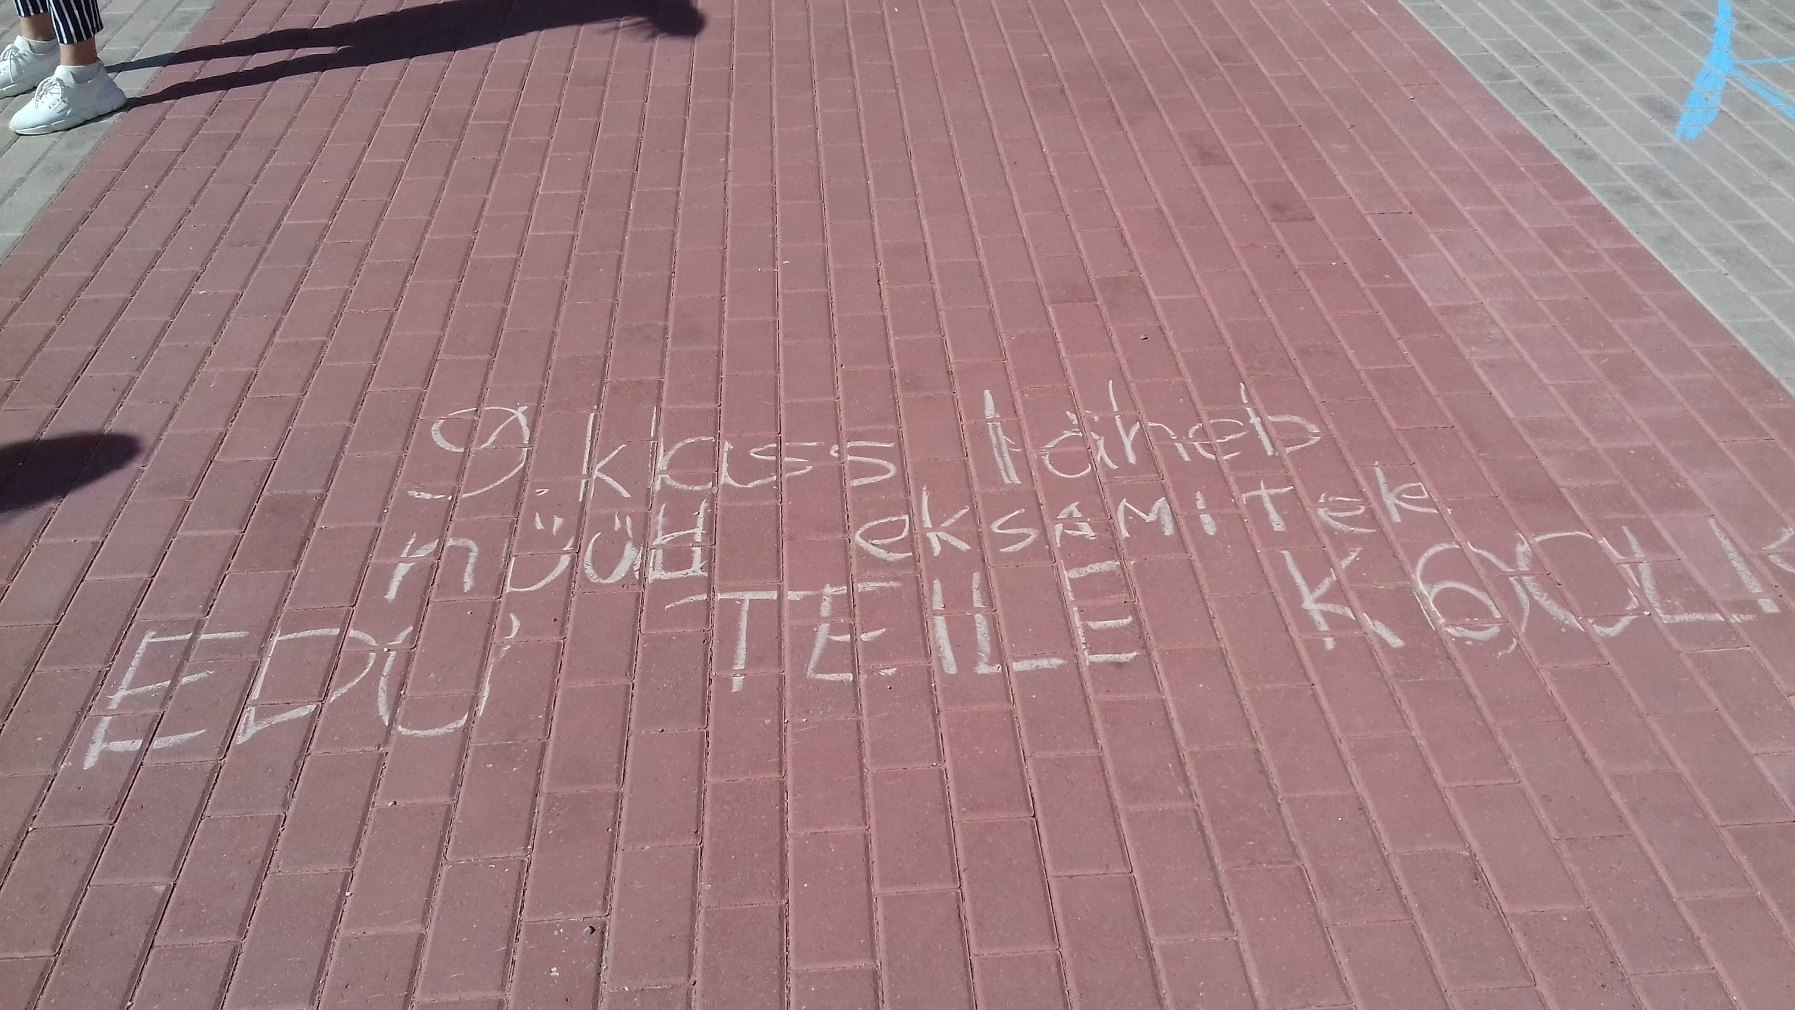 9. klass läheb
nüüd eksamitek.
EDU TEILE KOOL!